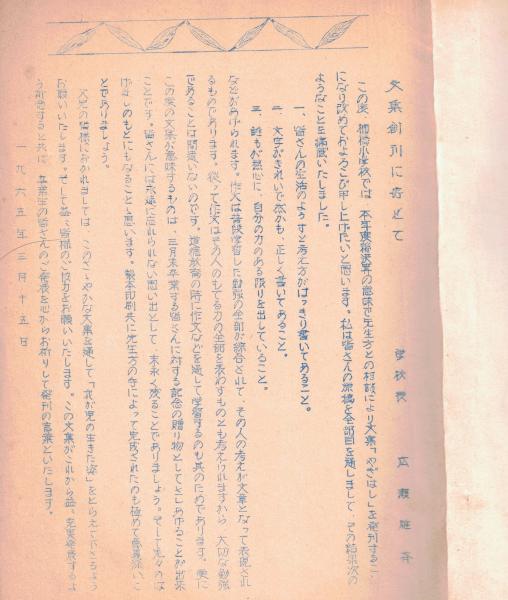 文集創刊に寄せて
学校長 広瀬
この度、小学校では、本年度総決算の意味で先生方との相談により文集「やぎはし」を発刊するこ
になり改めておよろこび申し上げたいと思います。私は皆さんの原稿を全部目を通しまして、その結果次の
ようなことを痛感いたしました。
一、皆さんの生活のようすと考え方がはっきり書いてあること。
二、文字がきれいで然かも、正しく書いてあること。
三、誰もが熱心に、自分の力のある限りを出していること。
などがあげられます。作文は普段学習した勉強の全部が綜合されて、その人の考えが文章となって表現され
るものであります。従って作文はその人のもてる力の全部を表わすものとも考えられますから、大切な勉強
であることは間違いないのです。道徳教育の時に作文などを通して学習するのも其のためであります。更に
この度の文集が意味するものは、三月末卒業する皆さんに対する記念の贈り物としてさしあげることが出来
ことです。皆さんには永遠に忘れられない思い出として、末永く残ることでありましょう。そして先々のは
げましのもとにもなることと思います。製本印刷共に先生方の手によって完成されたのも極めて意義深いこ
とでありましょう。
父兄の皆様におかれましては、このささやかな文集を通して「我が児の生きた姿」をとらえて下さるよう
お願いいたします。そして益々皆様のご協力をお願いいたします。この文集がこれから益々充実発展するよ
う祈念すると共に、卒業生の皆さんのご発展を心からお祈りして発刊の言葉といたします。
一九六五年三月十五日